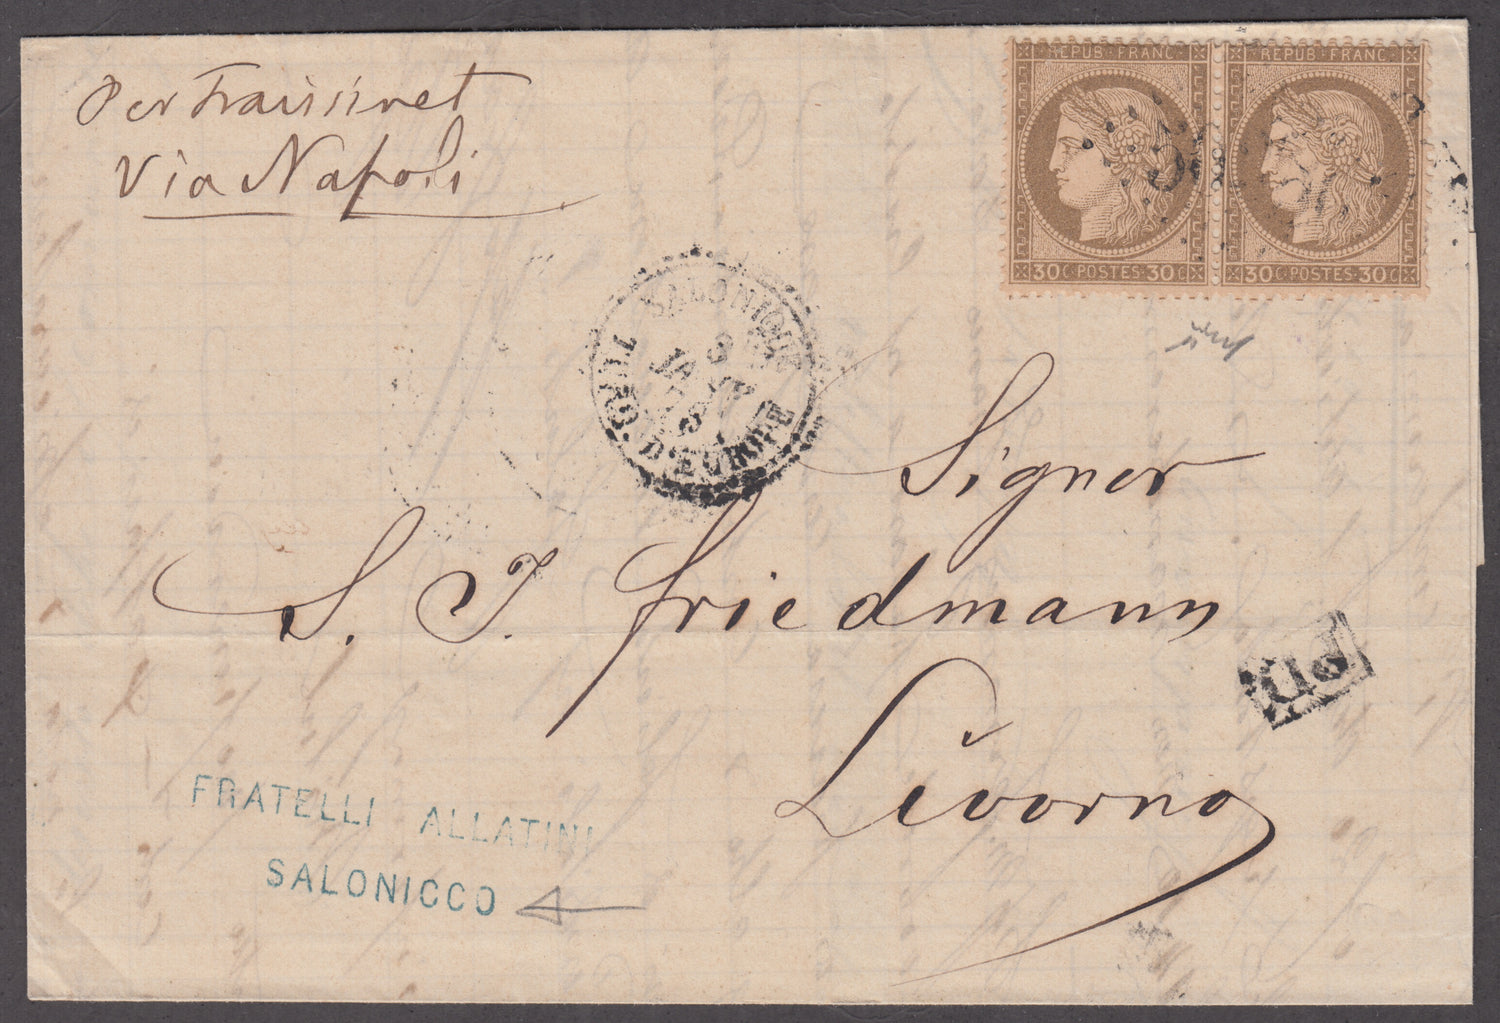 Per Fraissinet
Via Napoli
REPUB·FRANC·
30 C·POSTES·30 C
REPUB·FRANC·
30 C·POSTES·30 C
SALONIQUE
3
JANV
TURQ. D'EUROPE
Signor
S. J. Friedmann
Livorno
PD
FRATELLI ALLATINI
SALONICCO